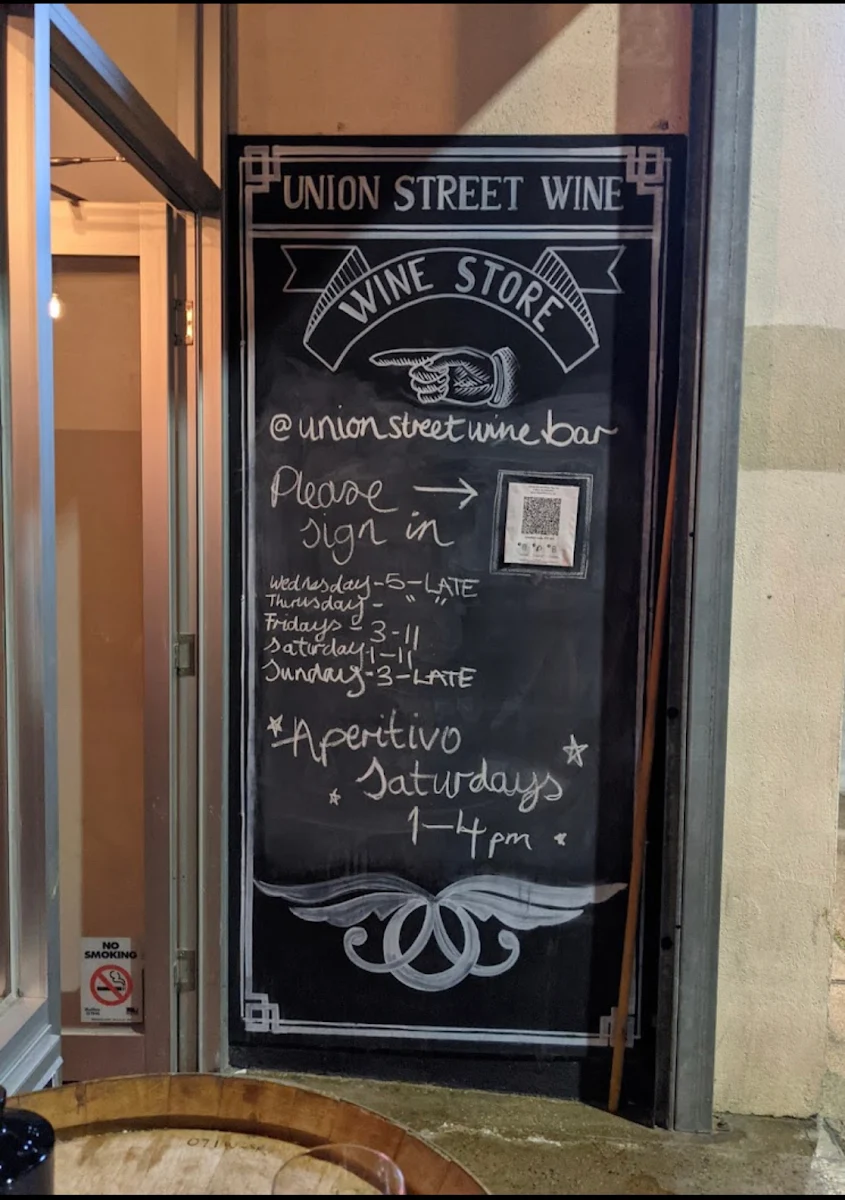 UNION STREET WINE
WINE STORE
@unionstreetwine.bar
Please →
sign in
Wednesday-5-LATE
Thurusday - " "
Fridays - 3-11
Saturday-1-11
Sunday-3-LATE
*Aperitivo
Saturdays
1-4pm
NO
SMOKING